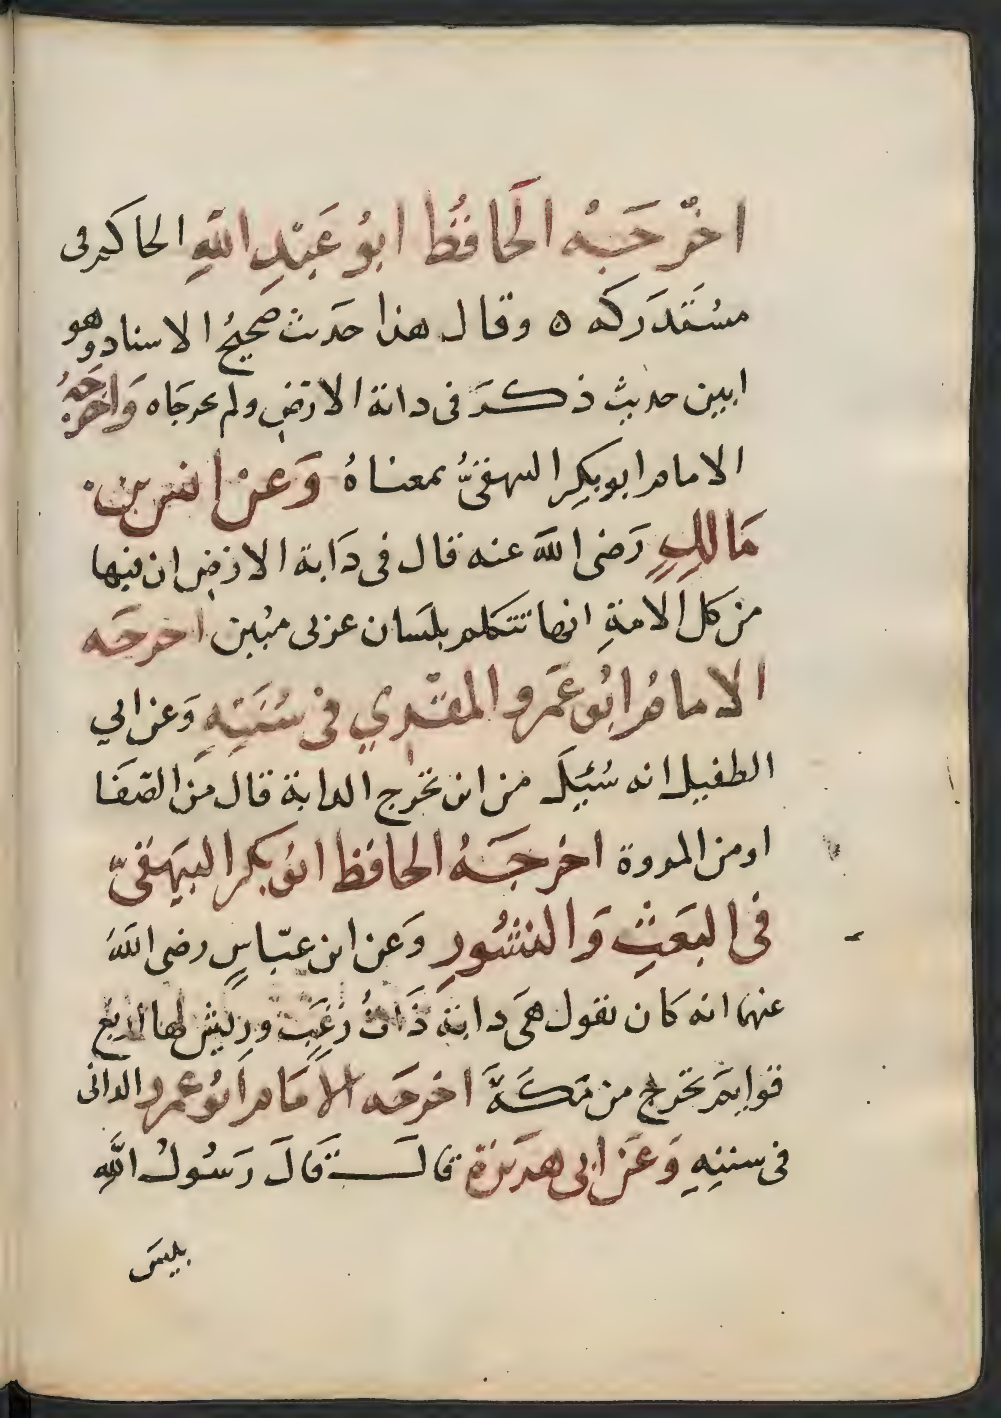 اخرّجَهُ الحَافظُ ابوُ عَبْدِ اللهِ الحاكم فى
مستَدرَكه ٥ وقال هذا حَديث صَحيحُ الاسناد وهو
ابين حديثٍ ذكرَ فى دابة الارَضِ ولم يخرجَاه وَاخرجَهُ
الامام ابو بكرِ البيهقىُّ بمعناهُ وَعَن انسِ بن
مَالكٍ رَضى الله عنه قال فى دَابة الارَضِ ان فيها
من كل الامةِ انها تتكلم بلسَان عربى مبُين اخرجَه
الامامُ ابُو عَمرو المقرى فى سُنَنِهِ وَعن ابي
الطفيل انه سُئِلَ من اين تخرج الدابة قال مَن الصَّفَا
او من المروة اخرجَهُ الحافظ ابُو بكر البيهقىّ
فى البَعَثِ وَالنشُورِ وَعن ابن عبّاسٍ رضى اللهَ
عنهما انه كان يقول هىَ دابة ذَاتُ زغَبٍ وريش لها اربع
قوايمَ تخرج من مَكَّة اخرجَه الامَام ابُو عمرو الدانى
فى سننِهِ وَعَن ابى هرَيَرَة قالَ قَالَ رَسُولُ اللَّهِ